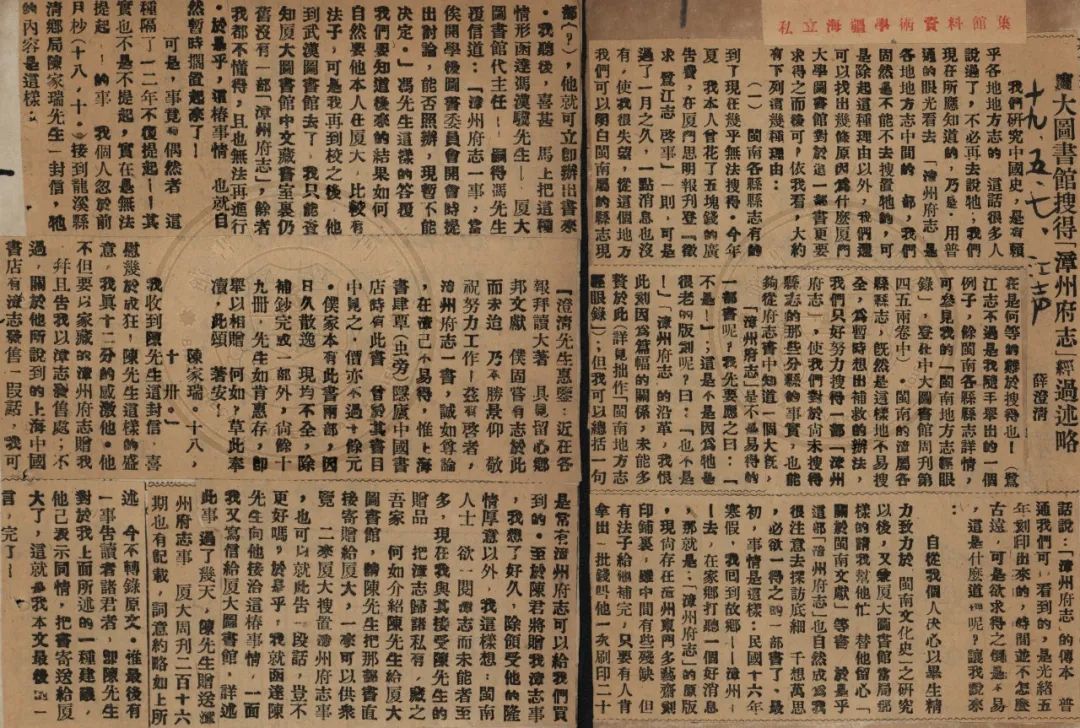 私立海疆學術資料館集
十九、五、七、江声
廈大圖書館搜得「漳州府志」經過述略
薛澄清
我們研究中國史，是有賴
乎各地地方志的，這話很多人
說過了，不必再去說牠；我們
現在所應知道的，乃是，用普
通的眼光看去「漳州府志」是
各地地方志中間的一部，我們
固然是不能不去搜置牠的，可
是除這種理由以外，我們還
可以找出幾條原因爲什麼厦門
大學圖書館對於這一部書更要
求得之而後可，依我看，大約
有下列這幾種理由：
（一）閩南各縣縣志有的
到了現在幾乎無法搜得。今年
夏，我本人曾花了五塊錢的廣
告費，在厦門思明報刋登「徵
求鷺江志啓事」一則，可是
過了一月之久，一點消息也沒
有，使我很失望，從這個地方
我們可以明白閩南屬的縣志現
在是何等的難於搜得也！（鷺
江志不過是我隨手舉出的一個
例子，餘閩南各縣縣志詳情，
可參見我的「閩南地方志經眼
錄」，登在中大圖書館周刋第
四五兩卷中）。閩南的漳屬各
縣縣志，旣然是這樣地不易搜
全，爲暫時想出補救的辦法，
我們只好努力搜得一部「漳州
府志」，使我們對於尙未搜得
縣志的那些分縣的事實，也能
夠從府志書中知道一個大槪，
「漳州府志」是不易得的
一部書呢？我先要應之曰：「
不是！」；這是不是因爲牠是
很老的版刻呢？曰：「也不是
！」「漳州府志」的沿革，我恨
此刻因爲篇幅的關係，未能多
贅於此（詳見拙作「閩南地方志
經眼錄」；但我可以總括一句
話說：「漳州府志」的傳本，普
通我們可，看到的，是光緒五
年刻印出來的，時間並不怎麽
古遠，可是欲求得之倒是不易
，這是什麽道理呢？讓我說來
自從我個人决心以畢生精
力致力於「閩南文化史」之研究
以後，又兼厦大圖書館當局那
樣的請我就他忙，替他留心「
關於閩南文獻」等書，於是乎
這部「漳州府志」也自然成爲我
很注意去探訪底細，千想萬思
，必欲一得之的一部書了。最
初，事情是這樣：民國十六年
寒假，我囘到故鄕——漳州—
—去，在家鄕打聽一個好消息
，那就是：「漳州府志」的原版
，現尙存在漳州東門多藝齋刻
印鋪裏，雖中間有些殘缺，但
有法子給牠補完，只要有人肯
拿出一批錢叫他一次刷印二十
部（？），他就可立卽辦出書來
。我聽後，喜甚，馬上把這種
情形函達馮漢驥先生——厦大
圖書館代主任——嗣得馮先生
覆信道：「漳州府志一事，當
俟開學後圖書委員會開會時提
出討論，能否照辦，現暫不可
决定。」馮先生這樣的答覆，
我們要知道後來的結果如何，
自然要本人在厦大，比較有
法子，可是我再到校之後，他
到武漢圖書館去了。我只能查
知厦大圖書館中文藏書室裏仍
舊沒有一部「漳州府志」，餘者
我都不懂得，且也無法再進行
。於是乎，這樁事情，也就自
然暫時擱置起來了！
可是，事竟有偶然者，這
種隔了一二年不復提起——其
實也不是不提起，實在是無法
提起——的事，我個人忽於前
月杪（十八，十）接到龍溪縣
清鄕局陳家瑞先生一封信，牠
的內容是這樣：
「澄清先生惠鑒：近在各
報拜讀大著，具見留心鄕
邦文獻，僕固嘗有志於此
而未迨，乃不勝景仰，敬
祝努力工作！茲有啓者，
漳州府志一書，誠如尊論
，在漳已不易得，惟上海
書肆草（虫旁）隱廬中國書
店時有此書，曾於其書目
中見之，價亦不過十餘元
。僕家本有此書兩部，因
日久散逸，現均不全，除
補鈔完成一部外，尙餘十
九册，先生如肯惠存，卽
擧以相贈，何如，草此奉
瀆，此頌　著安！
陳家瑞　十八，
十　卅。」
我收到陳先生這封信，喜
慰幾於成狂，陳先生這樣的盛
意，眞十二分的感激他。他
不但要以家藏的漳州府志贈我
，幷且告我以漳志發售處；不
過，關於他所說到的上海中國
書店有漳志發售一叚話，我可
是常有漳州府志可以給我們買
到的。至於陳君將贈我漳志事
，我想了好久，除領受他的隆
情厚意以外，我這樣想：閩南
人士，欲一閱漳志而未能者至
多，現在我與其接受陳先生的
贈品，把漳志歸諸私有，藏之
吾家，何如介紹陳先生給厦大
圖書館，請陳先生把那部書直
接寄贈給厦大，一來可以供衆
覽，二來厦大搜置漳州府志事
，也可以就此告一段落，豈不
更好嗎？於是乎，我就函達陳
先生向他接洽這樁事情，一面
我又寫信給厦大圖書館，詳述
此事，過了幾天，陳先生贈送漳
州府志事，厦大周刋二百十六
期也有記載，詞意約略如上所
述，今不轉錄原文。惟最後有
一事告讀者諸君者，卽陳先生
對於我上面所述的一種建議，
他己表示同情，把書寄送給厦
大了，這就是我本文最後的一
言，完了！